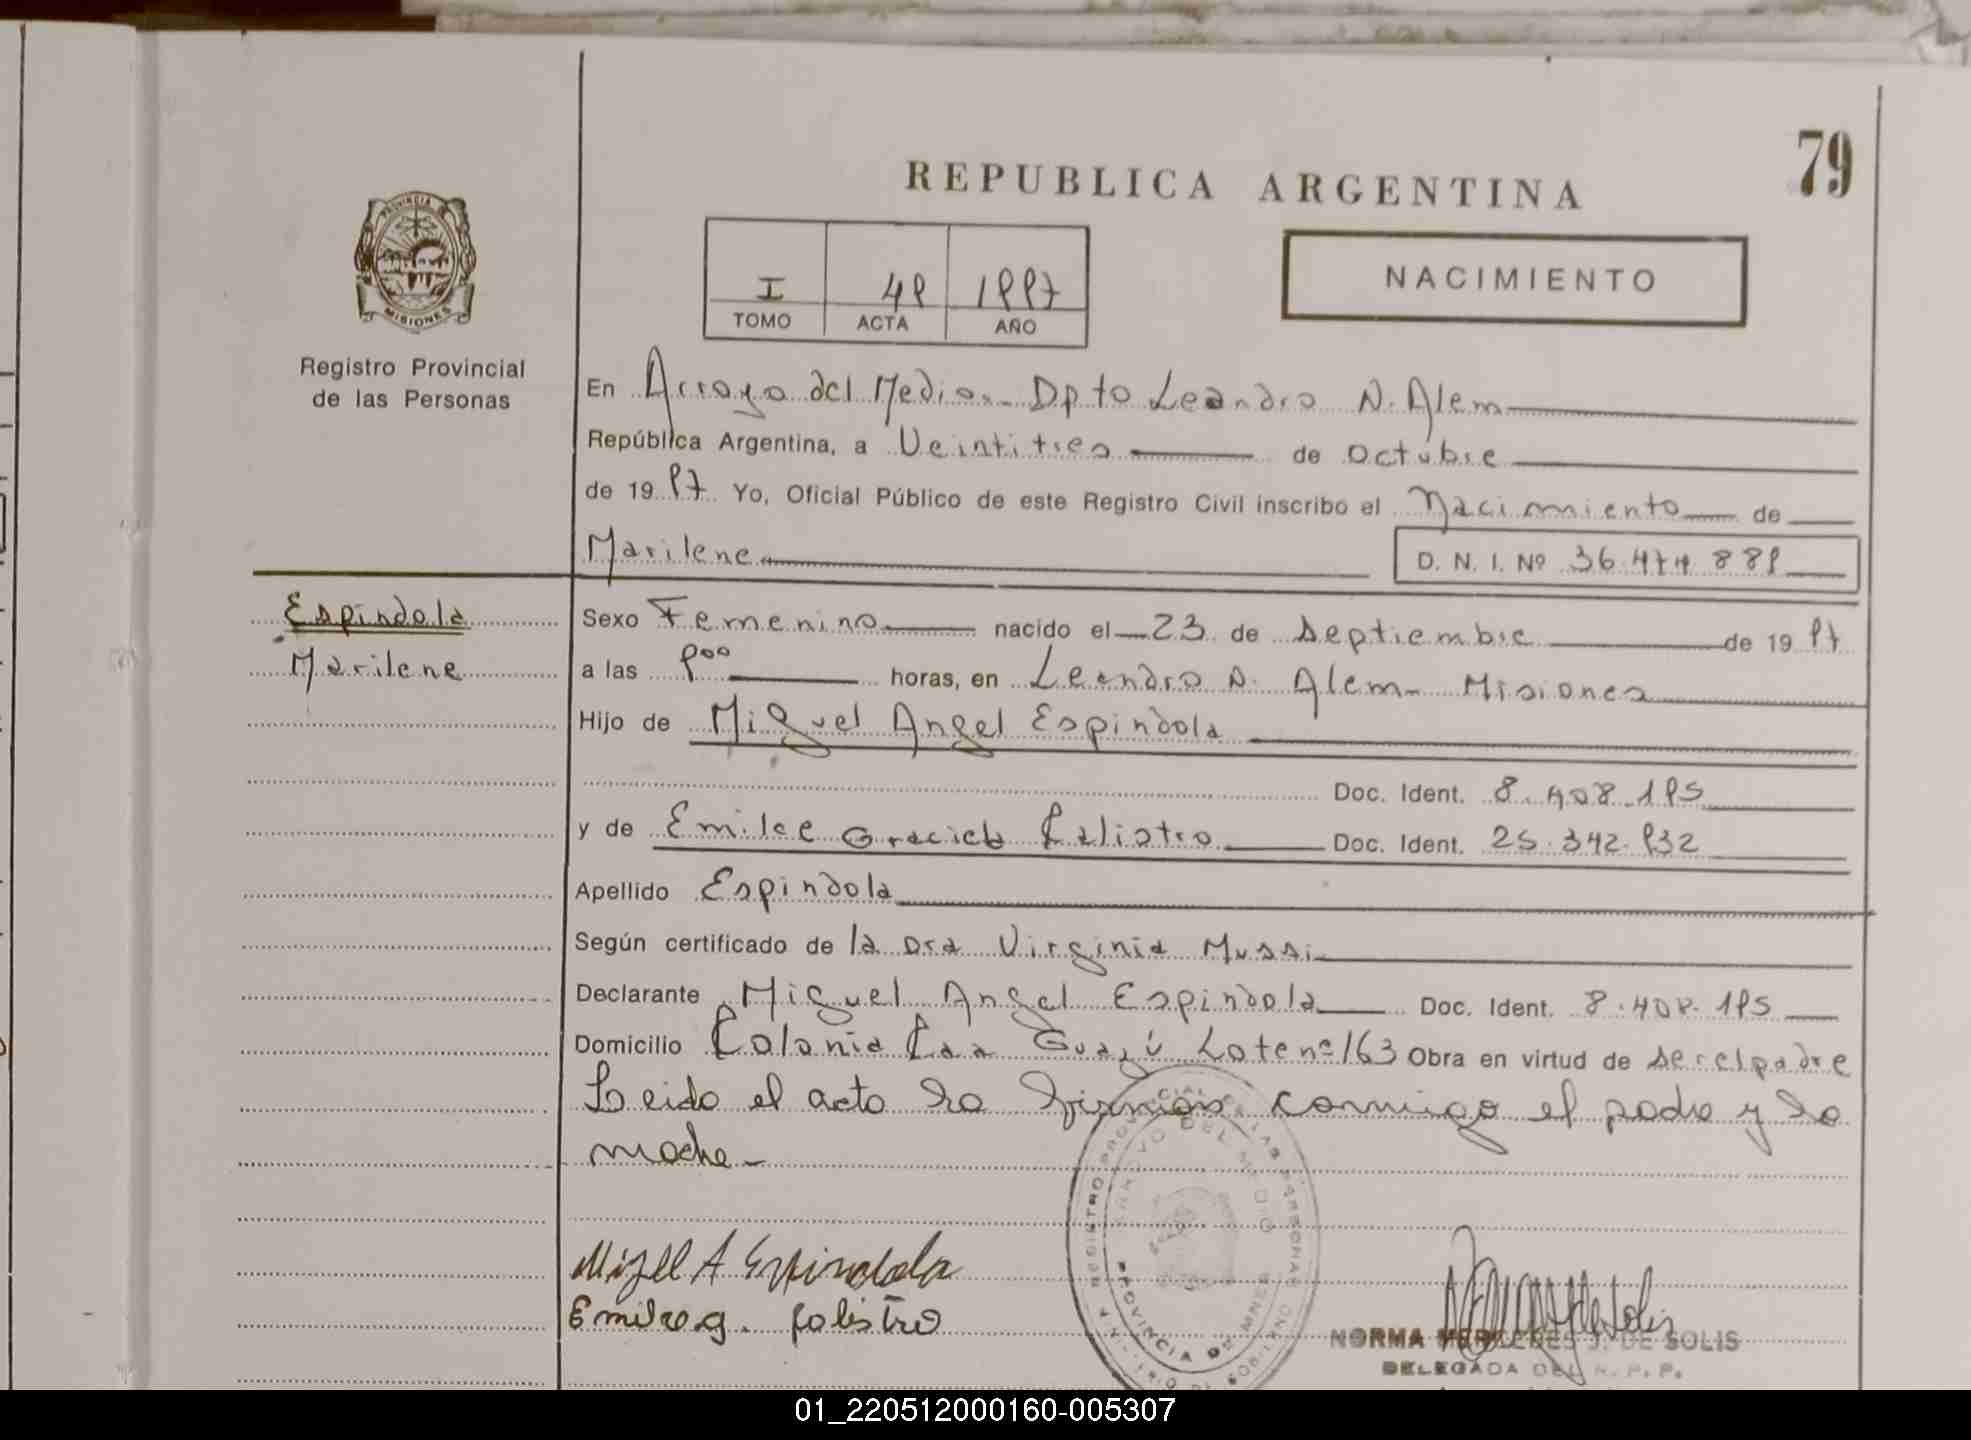 79
REPUBLICA ARGENTINA
PROVINCIA DE
MISIONES
I 49 1997
TOMO ACTA AÑO
NACIMIENTO
Registro Provincial
de las Personas
En Arroyo del Medio - Dpto Leandro N. Alem
República Argentina, a Veintitres de Octubre
de 1997 Yo, Oficial Público de este Registro Civil inscribo el Nacimiento de
Marilene D. N. I. Nº 36.474.889
Espindola
Marilene
Sexo Femenino nacido el 23 de Septiembre de 1997
a las 9ºº horas, en Leandro N. Alem - Misiones
Hijo de Miguel Angel Espindola
Doc. Ident. 8.408.195
y de Emilce Graciela Calistro Doc. Ident. 25.342.932
Apellido Espindola
Según certificado de la Dra Virginia Mussi
Declarante Miguel Angel Espindola Doc. Ident. 8.408.195
Domicilio Colonia Caa Guazú Lote nº 163 Obra en virtud de ser el padre
Leido el acta la firman conmigo el padre y la
madre -
REGISTRO PROVINCIAL DE LAS PERSONAS
ARROYO DEL MEDIO
PROVINCIA DE MNES
Miguel A Espindola
Emilce g. Calistro
NORMA MERCEDES J. DE SOLIS
DELEGADA DEL R. P. P.
01_220512000160-005307